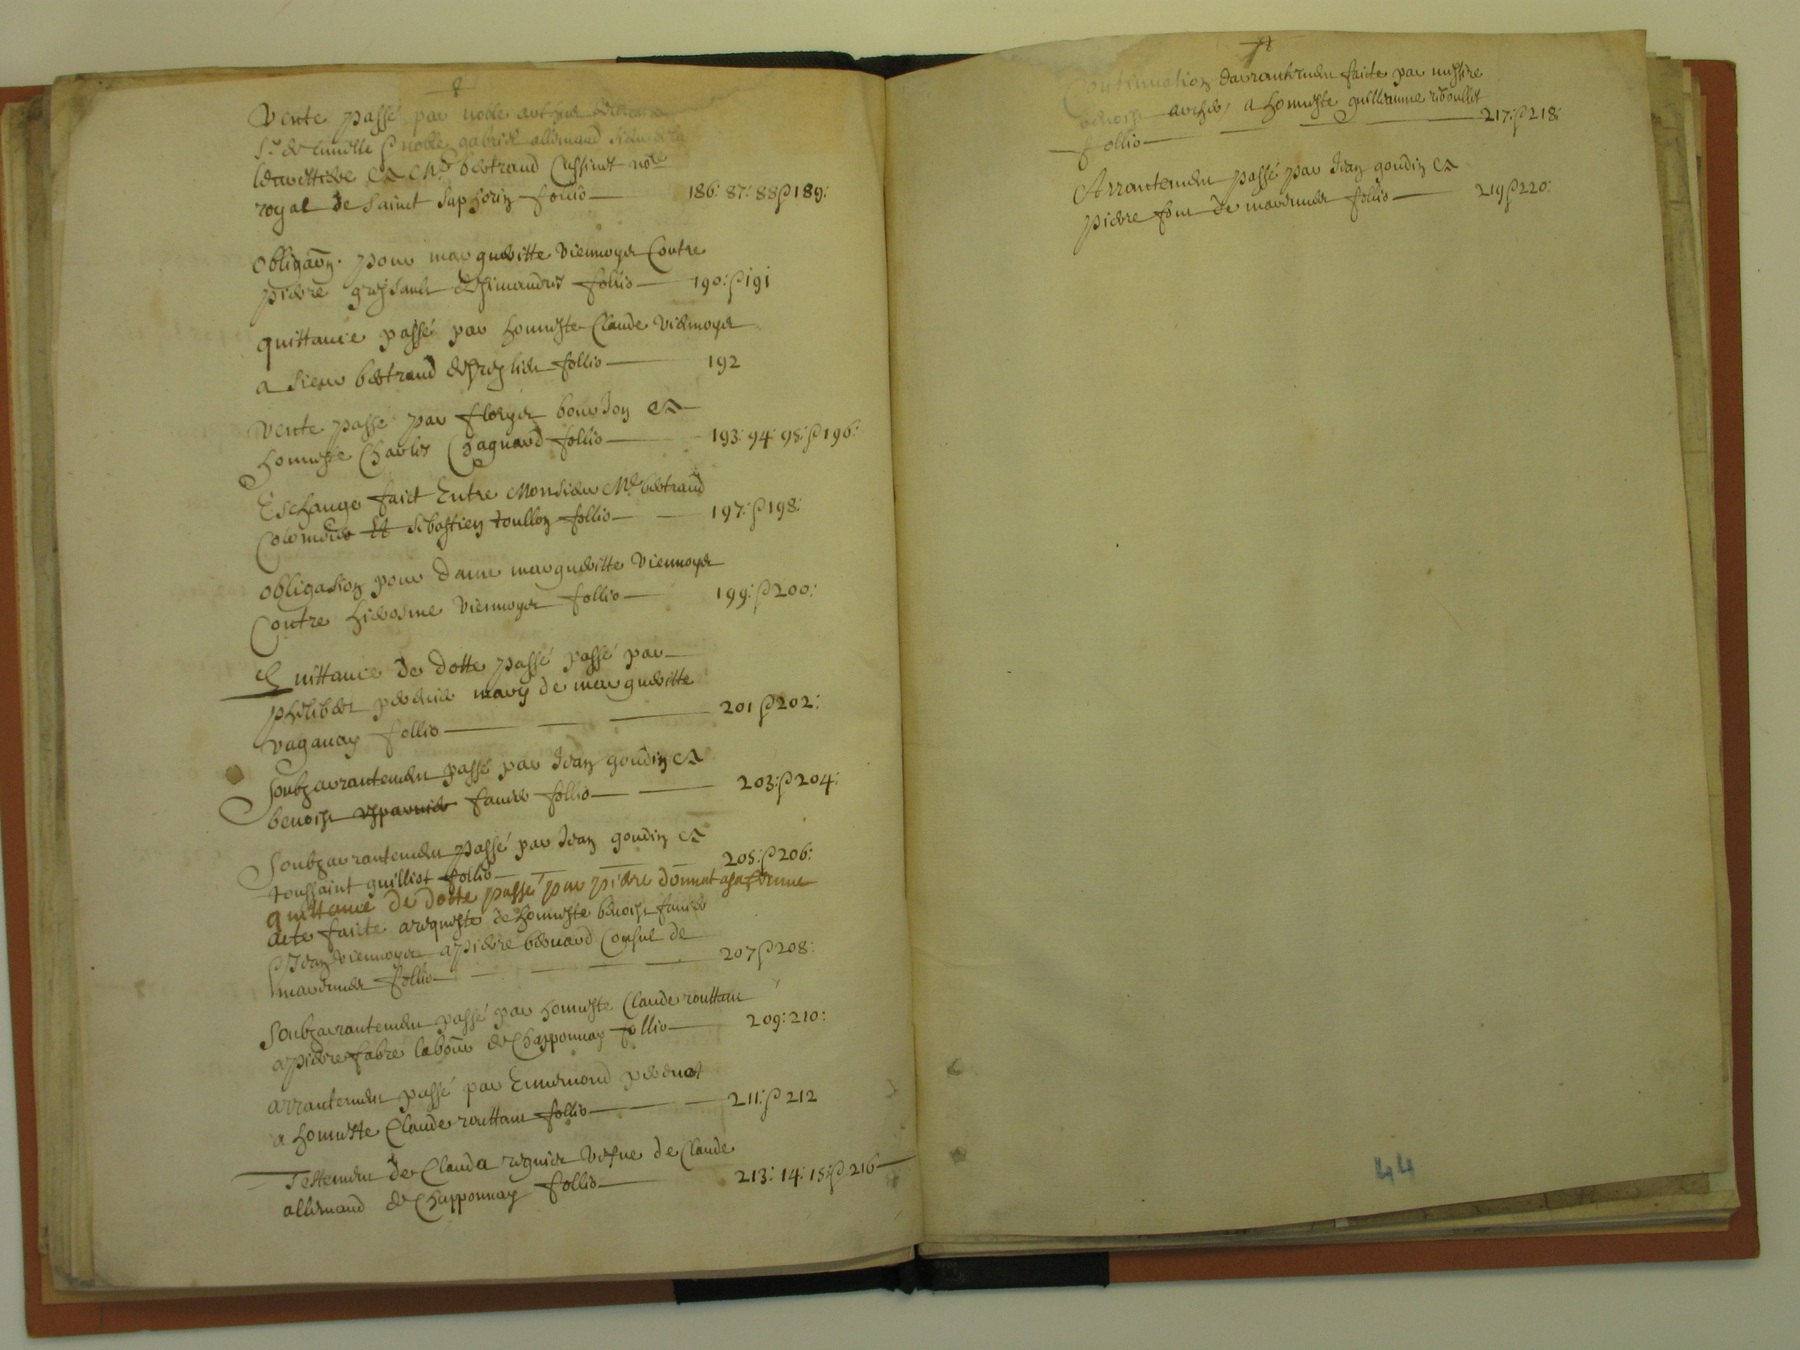 Vente passé par noble
Sr de & noble gabriel allemand
& Me bertrand nore
royal de Saint Saphorin follio 186: 87: 88 & 189:
obligaon pour margueritte Viennoys Contre
pierre follio 190: & 191
quittance passé par honneste Claude Viennoys
a Sieur bertrand follio 192
Vente passé par bourdon &
honneste Charles Chaguard follio 193: 94: 95: & 196:
Eschange faict Entre Monsieur Me bertrand
Et sebastien toullon follio 197: & 198:
obligation pour dame margueritte Viennoys
Contre hierosme Viennoys follio 199: & 200:
Quittance de dotte passé passé par
philibert mary de margueritte
vaganay follio 201 & 202:
Soubzarrantement passé par Jean goudin &
benoist faure follio 203: & 204:
Soubzarrantement passé par Jean goudin &
toussaint guilliot follio 205: & 206:
quittance de dotte passé par pierre donnat a sa femme
acte faicte a requeste de honneste benoist faure
& Jean Viennoys a pierre benard Consul de
marennes follio 207 & 208:
Soubzarrantement passé par honneste Claude routtant
a pierre fabre de Chapponnay follio 209: 210:
arrantement passé par Ennemond
a honneste Claude routtant follio 211: & 212
Testement de Clauda regnier Vefue de Claude
allemand de Chapponnay follio 213: 14: 15: & 216
Continuation darrantement faicte par messire
benoist a honneste guilliaume
follio 217: & 218:
Arrantement passé par Jean goudin &
pierre de marennes follio 219 & 220:
44